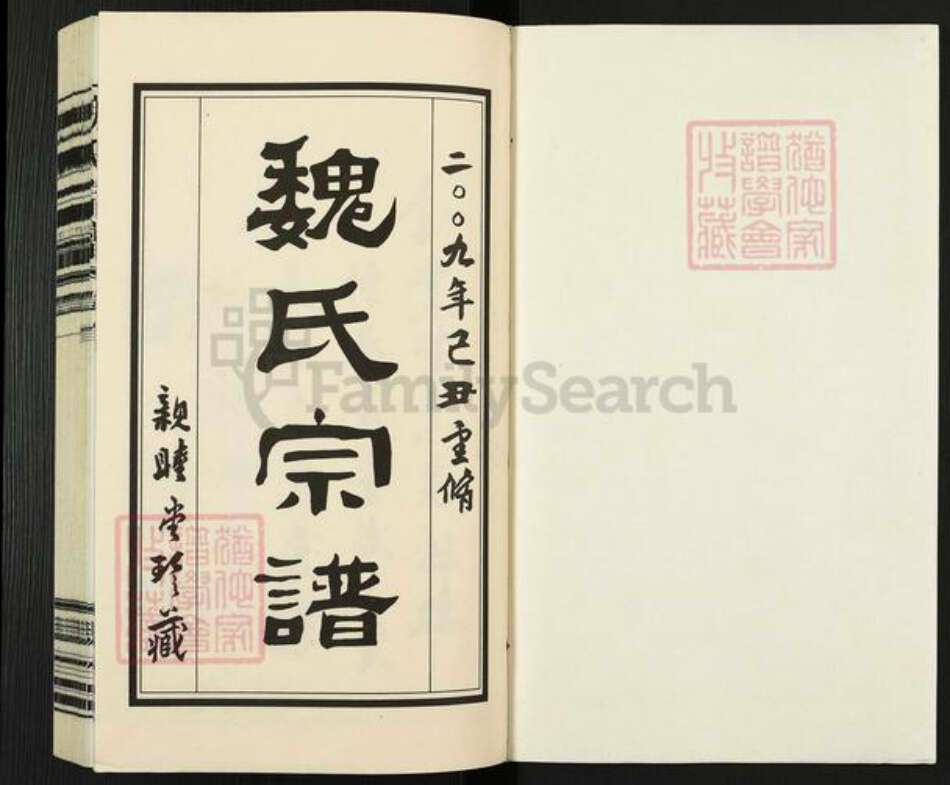 猶他家
譜學會
收藏
二〇〇九年己丑重脩
魏氏宗譜
親睦堂珍藏
猶他家
譜學會
收藏
FamilySearch